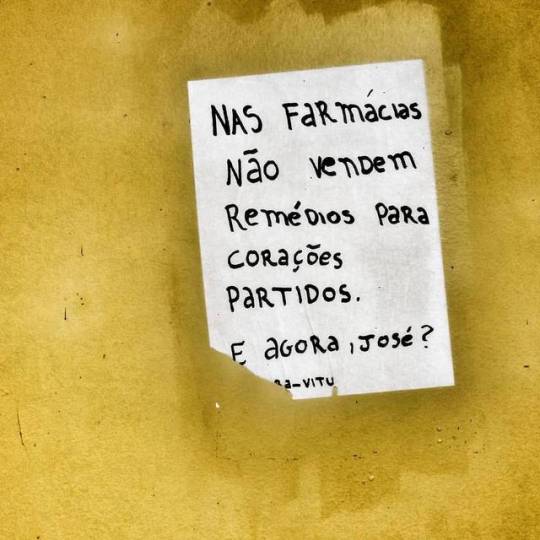 NAS FARMÁCIAS
NÃO VENDEM
REMÉDIOS PARA
CORAÇÕES
PARTIDOS.
E AGORA, JOSÉ?
RA-VITU